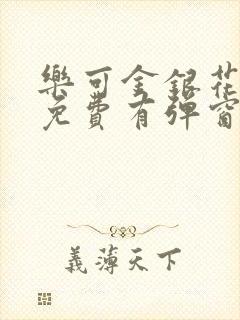 樂可金銀花
免費有彈窗
義薄天下